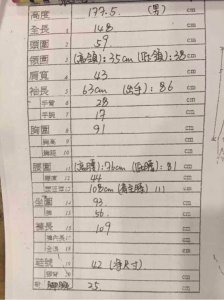 高度 177.5 (男) cm
全長 1 148 cm
頭圍 2 59 cm
領圍 3 (高領):35cm (低領):38 cm
肩寬 4 43 cm
袖長 5 63cm (出手):86 cm
手臂 6 28 cm
手腕 7 17 cm
胸圍 8 91 cm
胸高 9 cm
胸距 10 cm
腰圍 11 (高腰):76cm (低腰):81 cm
腰直 12 44 cm
108cm (高至膝) 111 cm
坐圍 14 93 cm
腿 15 56 cm
褲長 16 109 cm
褲內長 17 cm
cm
鞋號 19 42 (呎尺寸) cm
20 cm
25 cm